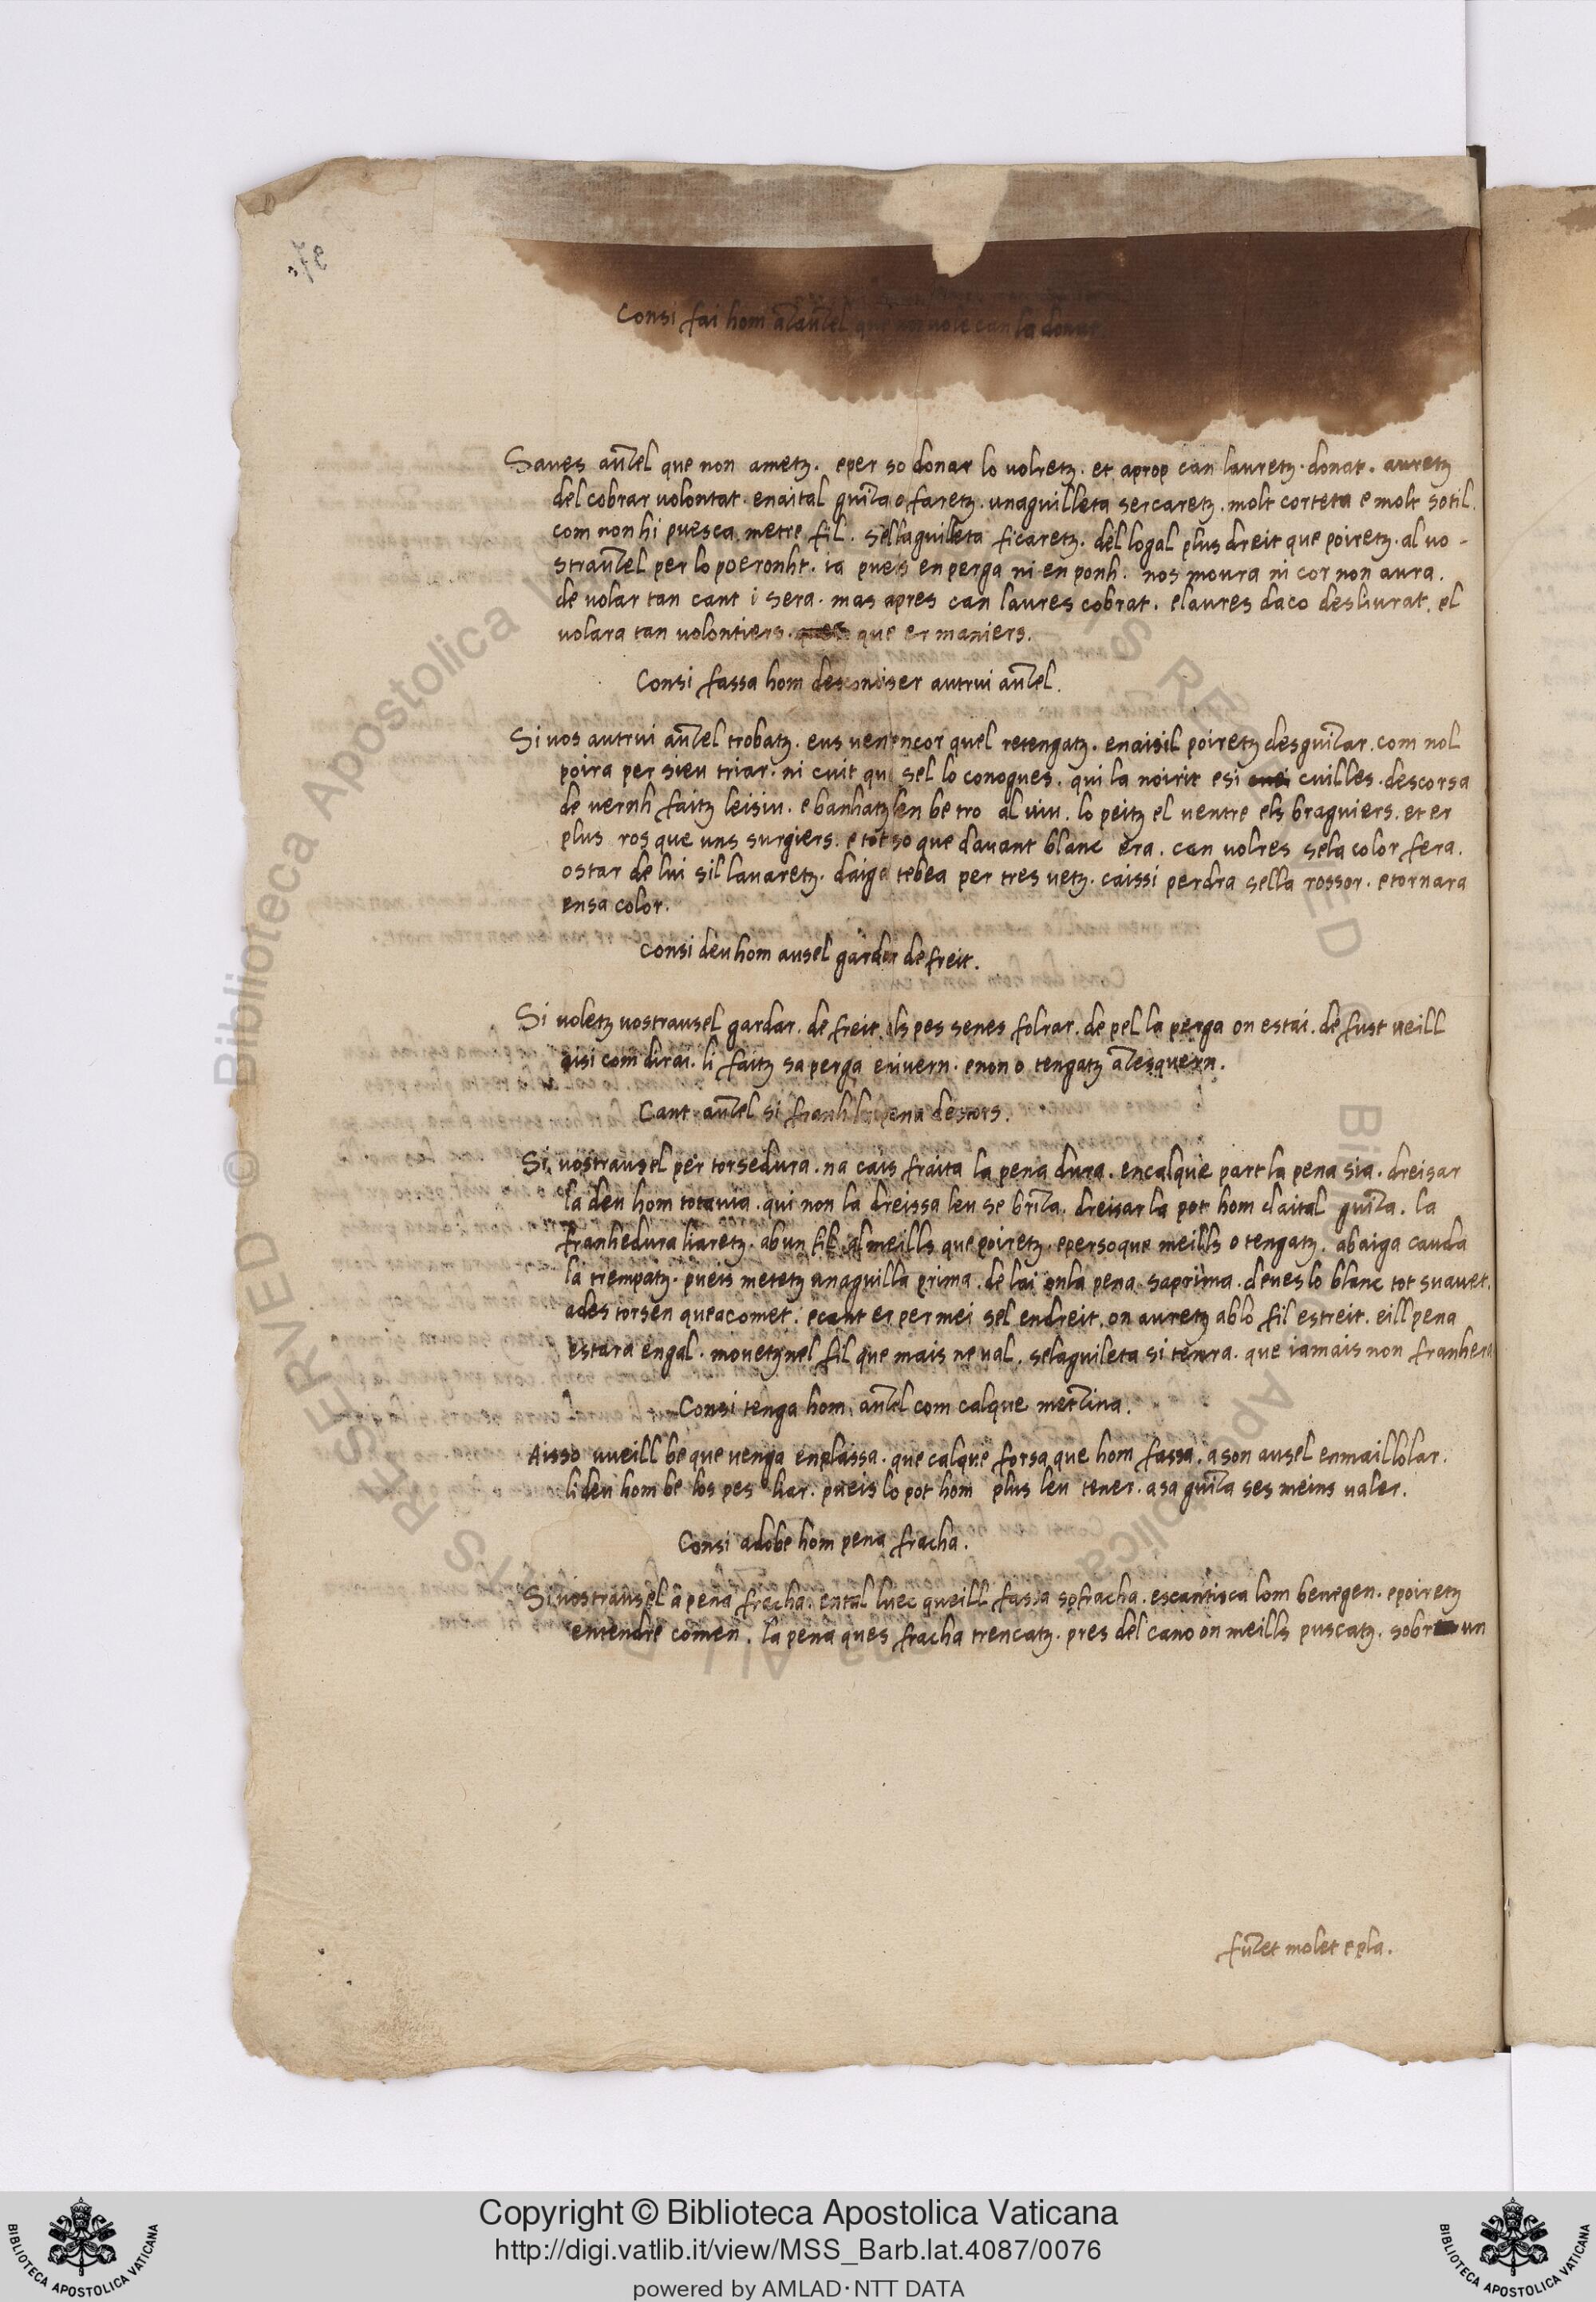 Consi fai hom auzel que non vole can la donat
Saues auzel que non ametz. eper so donar lo uolretz. et aprop can lauretz. donat. auretz
del cobrar uolontat. enaital guiza o faretz. unaguilleta sercaretz. molt corteta e molt sotil.
com non hi puesca metre fil. sellaguilleta ficaretz. del logal plus dreit que poiretz. al uo-
strauzel per lo poeronht. ia pueis en perga ni en ponh. nos moura ni cor non aura.
de uolar tan cant i sera. mas apres can laures cobrat. elaures daco desliurat. el
uolara tan uolontiers. que er maniers.
Consi fassa hom desconoiser autrui auzel.
Si uos autrui auzel trobatz. eus uen encor quel retengatz. enaisil poiretz desguizar. com nol
poira per sieu triar. ni cuit qu sel lo conogues. qui la noirit esi cuilles. descorsa
de uernh faitz leisiu. e banhatz len be tro al uiu. lo peitz el uentre els braguiers. et er
plus ros que uns surgiers. e tot so que dauant blanc era. can uolres sela color fera.
ostar de lui sil lauaretz. daiga tebea per tres uetz. caissi perdra sella rossor. etornara
ensa color.
Consi deu hom ausel gardar de freit.
Si uoletz uostrausel gardar. de freit. els pes senes folrar. de pel la perga on estai. de fust ueill
aisi com dirai. li faitz sa perga eniuern. enon o tengatz a esquern.
Cant auzel si franh la pena destors.
Si uostrausel per torsedura. na cais fraita la pena dura. encalque part la pena sia. dreisar
la deu hom totauia. qui non la dreissa leu se briza. dreisar la pot hom daital guiza. la
franhedura liaretz. abun fil. al meills que poiretz. epersoque meills o tengatz. abaiga cauda
la trempatz. pueis metetz unaguilla prima. de lai onla pena saprima. deues lo blanc tot suauet.
ades torsen queacomet. ecant er per mei sel endreit. on auretz ablo fil estreit. eill pena
estara engal. mouetz nel fil que mais ne ual. selaguileta si tenra. que iamais non franhera
Consi tenga hom auzel com calque mezina.
Aisso uueill be que uenga enplassa. que calque forsa que hom fassa. a son ausel enmaillolar.
li deu hom be los pes liar. pueis lo pot hom plus leu tener. a sa guiza ses meins ualer.
Consi adobe hom pena fracha.
Si uostrausel a pena fracha. ental luec queill fassa sofracha. escantisca lom benegen. epoiretz
entendre comen. la pena ques fracha trencatz. pres del cano on meills puscatz. sobr un
fuzet molet e pla.
Copyright © Biblioteca Apostolica Vaticana
http://digi.vatlib.it/view/MSS_Barb.lat.4087/0076
powered by AMLAD·NTT DATA